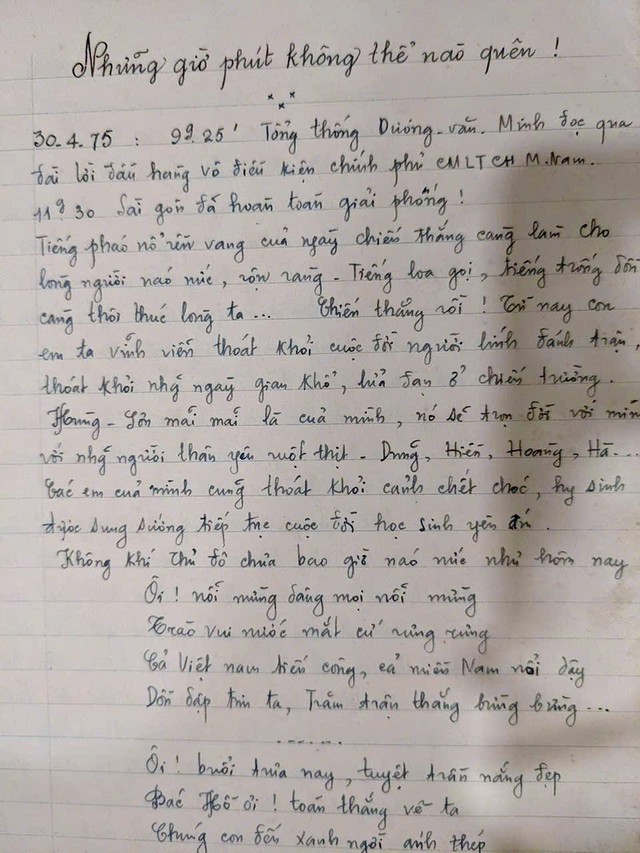 Những giờ phút không thể nào quên !
30.4.75 : 9g.25' Tổng thống Dương-văn.Minh đọc qua
đài lời đầu hàng vô điều kiện chính phủ CMLTCH M.Nam.
11g30 Sài gòn đã hoàn toàn giải phóng !
Tiếng pháo nổ rền vang của ngày chiến thắng càng làm cho
lòng người náo nức, rộn ràng - Tiếng loa gọi, tiếng trống dồn
càng thôi thúc lòng ta ... Chiến thắng rồi ! Từ nay con
em ta vĩnh viễn thoát khỏi cuộc đời người lính đánh trận,
thoát khỏi nhg ngày gian khổ, lửa đạn ở chiến trường.
Hùng - Sơn mãi mãi là của mình, nó sẽ trọn đời với mình
với nhg người thân yêu ruột thịt - Dung, Hiền, Hoàng, Hà....
Các em của mình cũng thoát khỏi cảnh chết chóc, hy sinh
được sung sướng tiếp tục cuộc đời học sinh yên ấm.
Không khí thủ đô chưa bao giờ náo nức như hôm nay
Ôi ! nỗi mừng dâng mọi nỗi mừng
Trào vui nước mắt cứ rưng rưng
Cả Việt nam tiến công, cả miền Nam nổi dậy
Dồn dập tin ta, Trăm trận thắng bừng bừng ...
......
Ôi ! buổi trưa nay, tuyệt trần nắng đẹp
Bác Hồ ơi ! toàn thắng về ta
Chúng con đến xanh ngời ánh thép